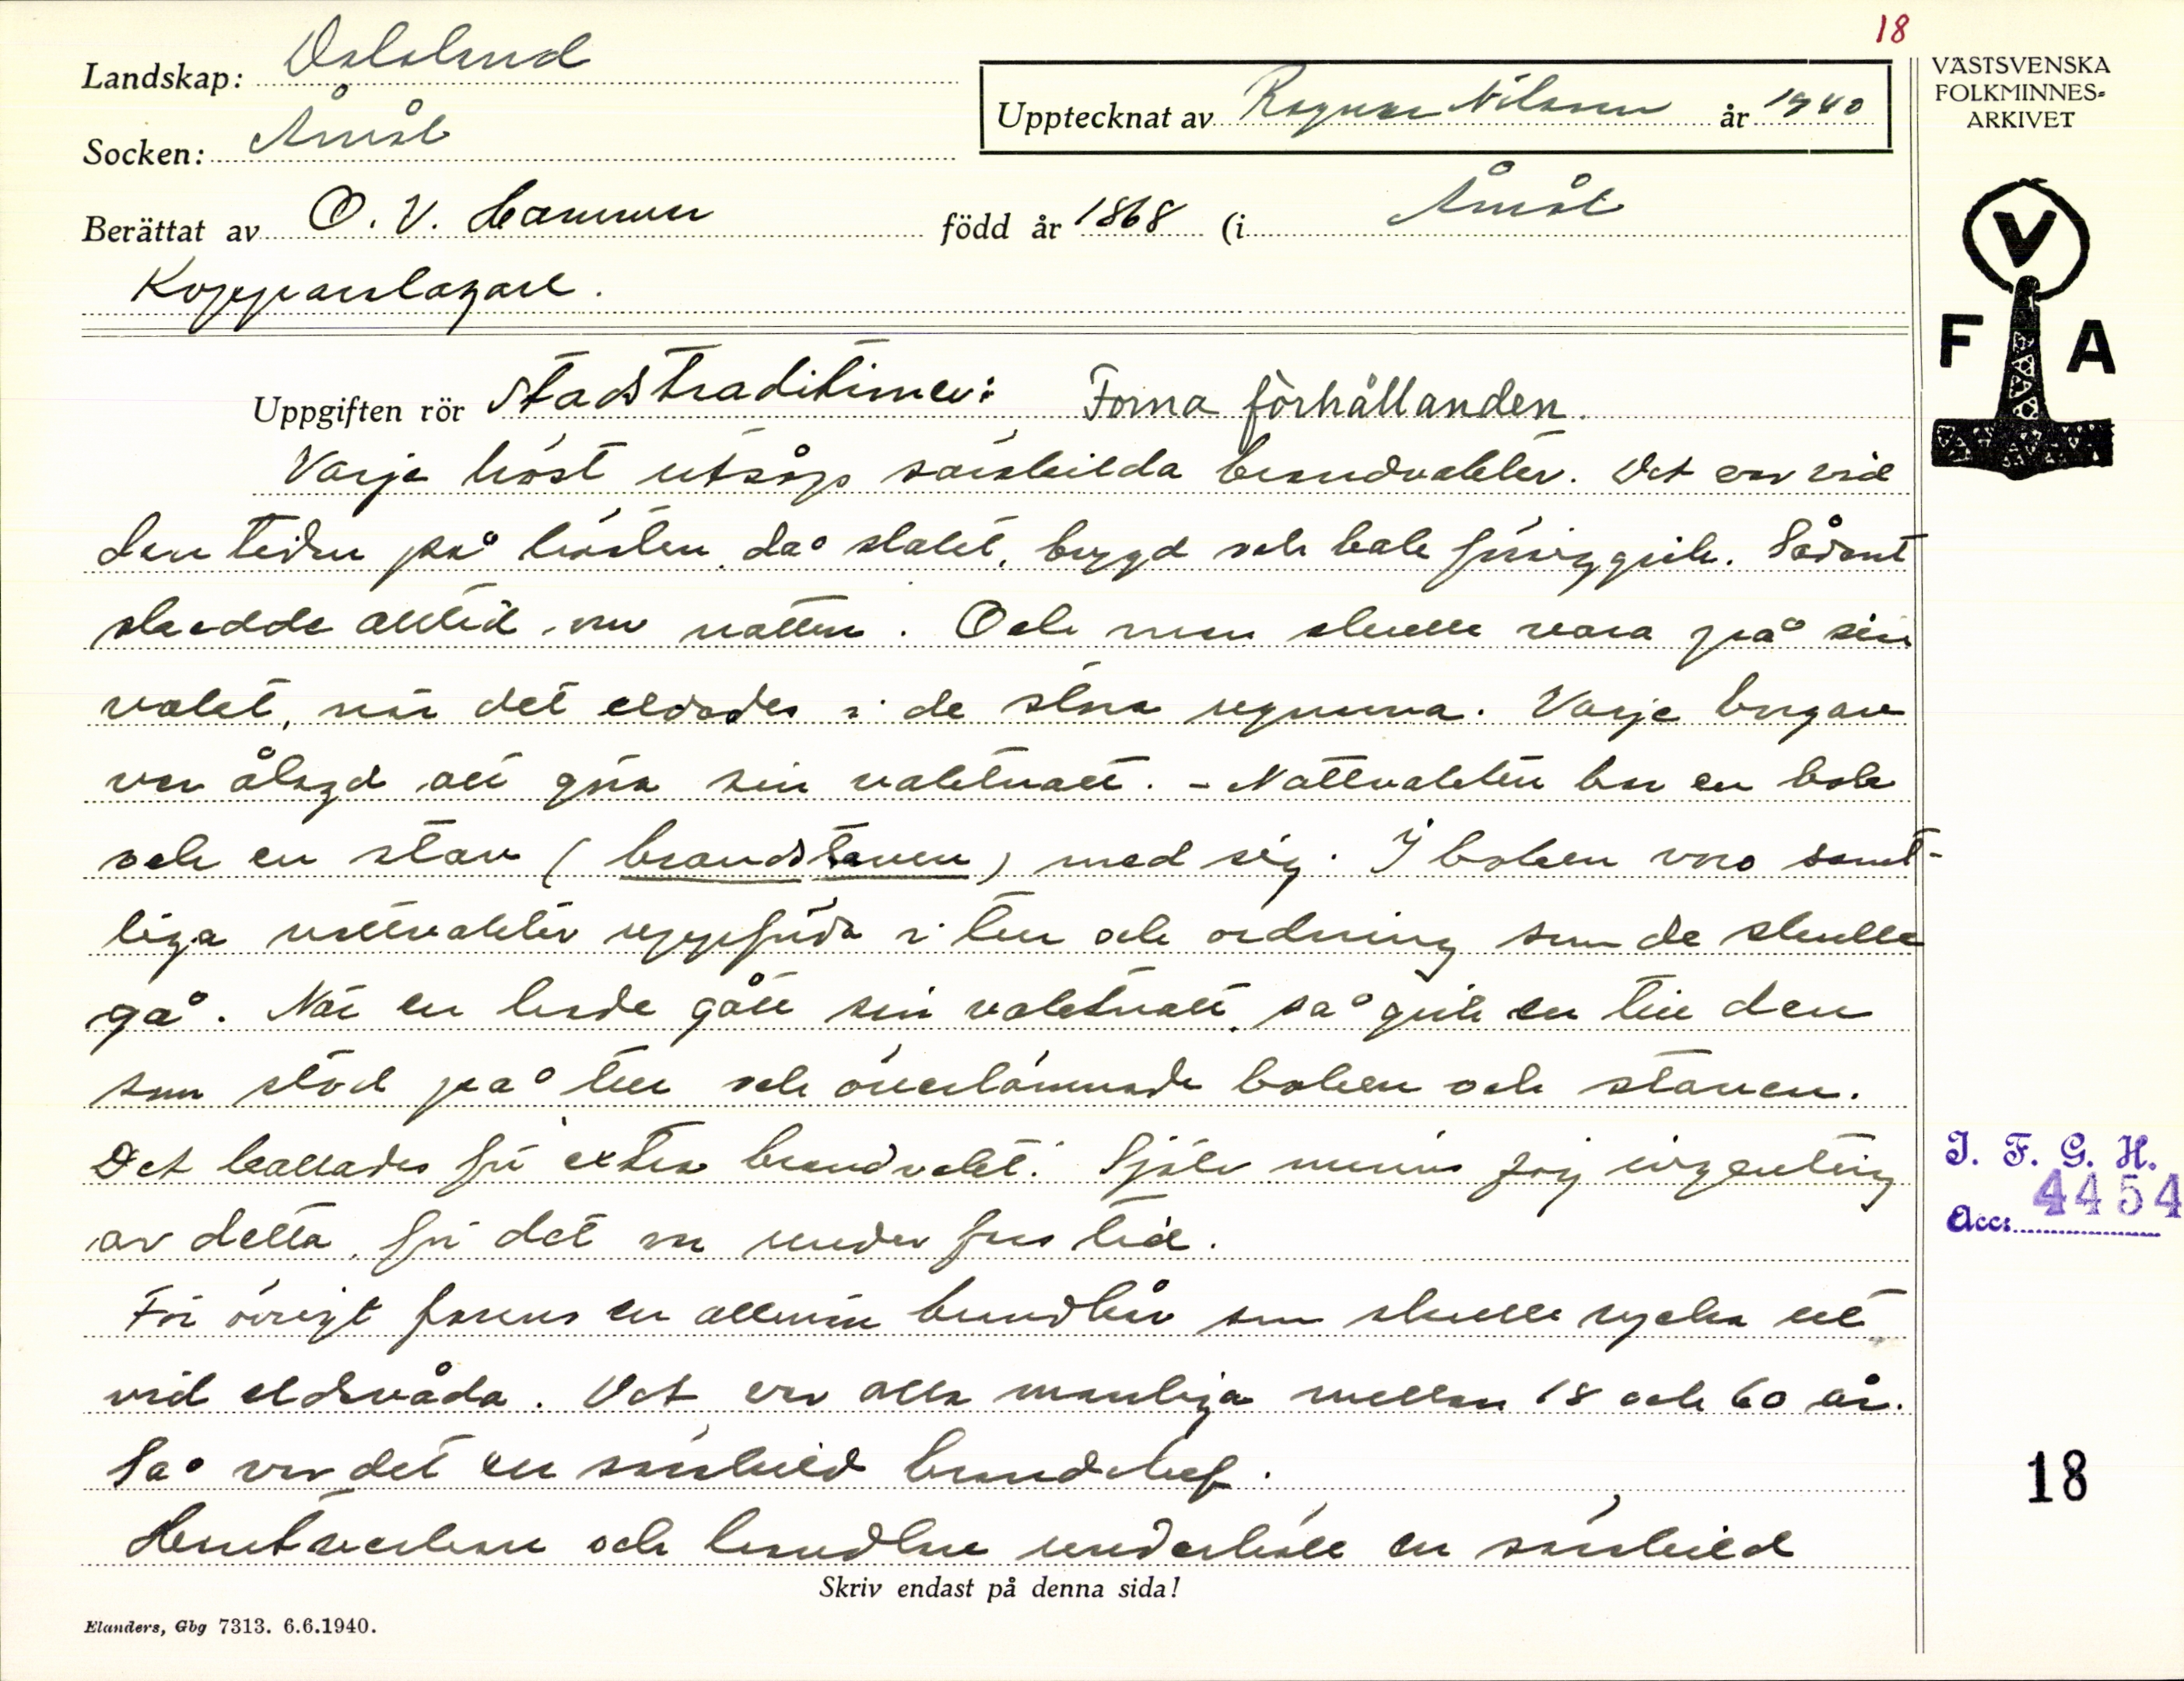 18
Landskap: Dalsland
Socken: Åmål
Upptecknat av Ragnar Nilsson år 1940
VÄSTSVENSKA
FOLKMINNES-
ARKIVET
Berättat av O. V. Hammer född år 1868 (i Åmål
Kopparslagare.
V
F A
Uppgiften rör Stadstraditioner: Forna förhållanden.
Varje höst utsågs särskilda brandvakter. Det var vid
den tiden på hösten, då slakt, brygd och bak försiggick. Sådant
skedde alltid om natten. Och man skulle vara på sin
vakt, när det eldades i de stora ugnarna. Varje borgare
var ålagd att göra sin vaktnatt. - Nattvakten bar en bok
och en stav (brandstaven) med sig. I boken voro samt-
liga nattvakter uppförda i tur och ordning som de skulle
gå. När en hade gått sin vaktnatt, så gick en till den
som stod på tur och överlämnade boken och staven.
Det kallades för "extra brandvakt." Själv minns jag ingenting
av detta, för det var under fars tid.
För övrigt fanns en allmän brandkår som skulle rycka ut
vid eldsvåda. Det var alla manliga mellan 18 och 60 år.
Så var det en särskild brandchef.
Hantverkare och handlare underhöll en särskild
Skriv endast på denna sida!
Elanders, Gbg 7313. 6.6.1940.
I. F. G. H.
Acc: 4454
18